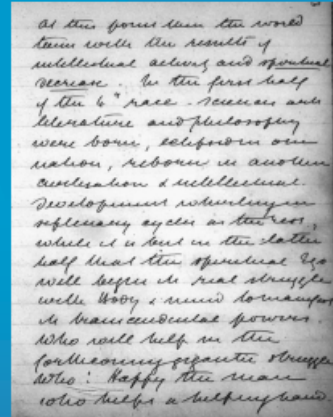 At this point then the world
teems with the results of
intellectual activity and spiritual
decrease. In the first half
of the 4" race. sciences arts
literature and philosophy
were born, eclipsed in one
nation, reborn in another
civilisation & intellectual
Development whirling in
septenary cycles as the rest,
while it is but in the latter
half that the spiritual Ego
will begin its real struggle
with Body & mind to manifest
its transcendental powers
Who will help in the
forthcoming gigantic struggle
Who? Happy the man
who helps a helping hand